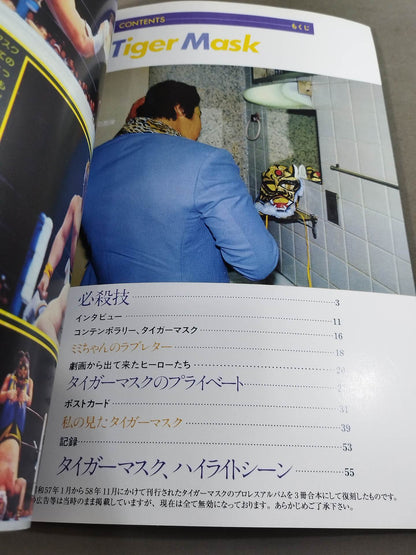 CONTENTS
もくじ
Tiger Mask
必殺技 3
インタビュー 11
コンテンポラリー、タイガーマスク 16
ミミちゃんのラブレター 18
劇画から出て来たヒーローたち
タイガーマスクのプライベート
ポストカード 31
私の見たタイガーマスク 39
記録 53
タイガーマスク、ハイライトシーン 55
和57年1月から58年11月にかけて刊行されたタイガーマスクのプロレスアルバムを3冊合本にして復刻したものです。
の広告等は当時のまま掲載していますが、現在は全て無効になっております。あらかじめご了承下さい。